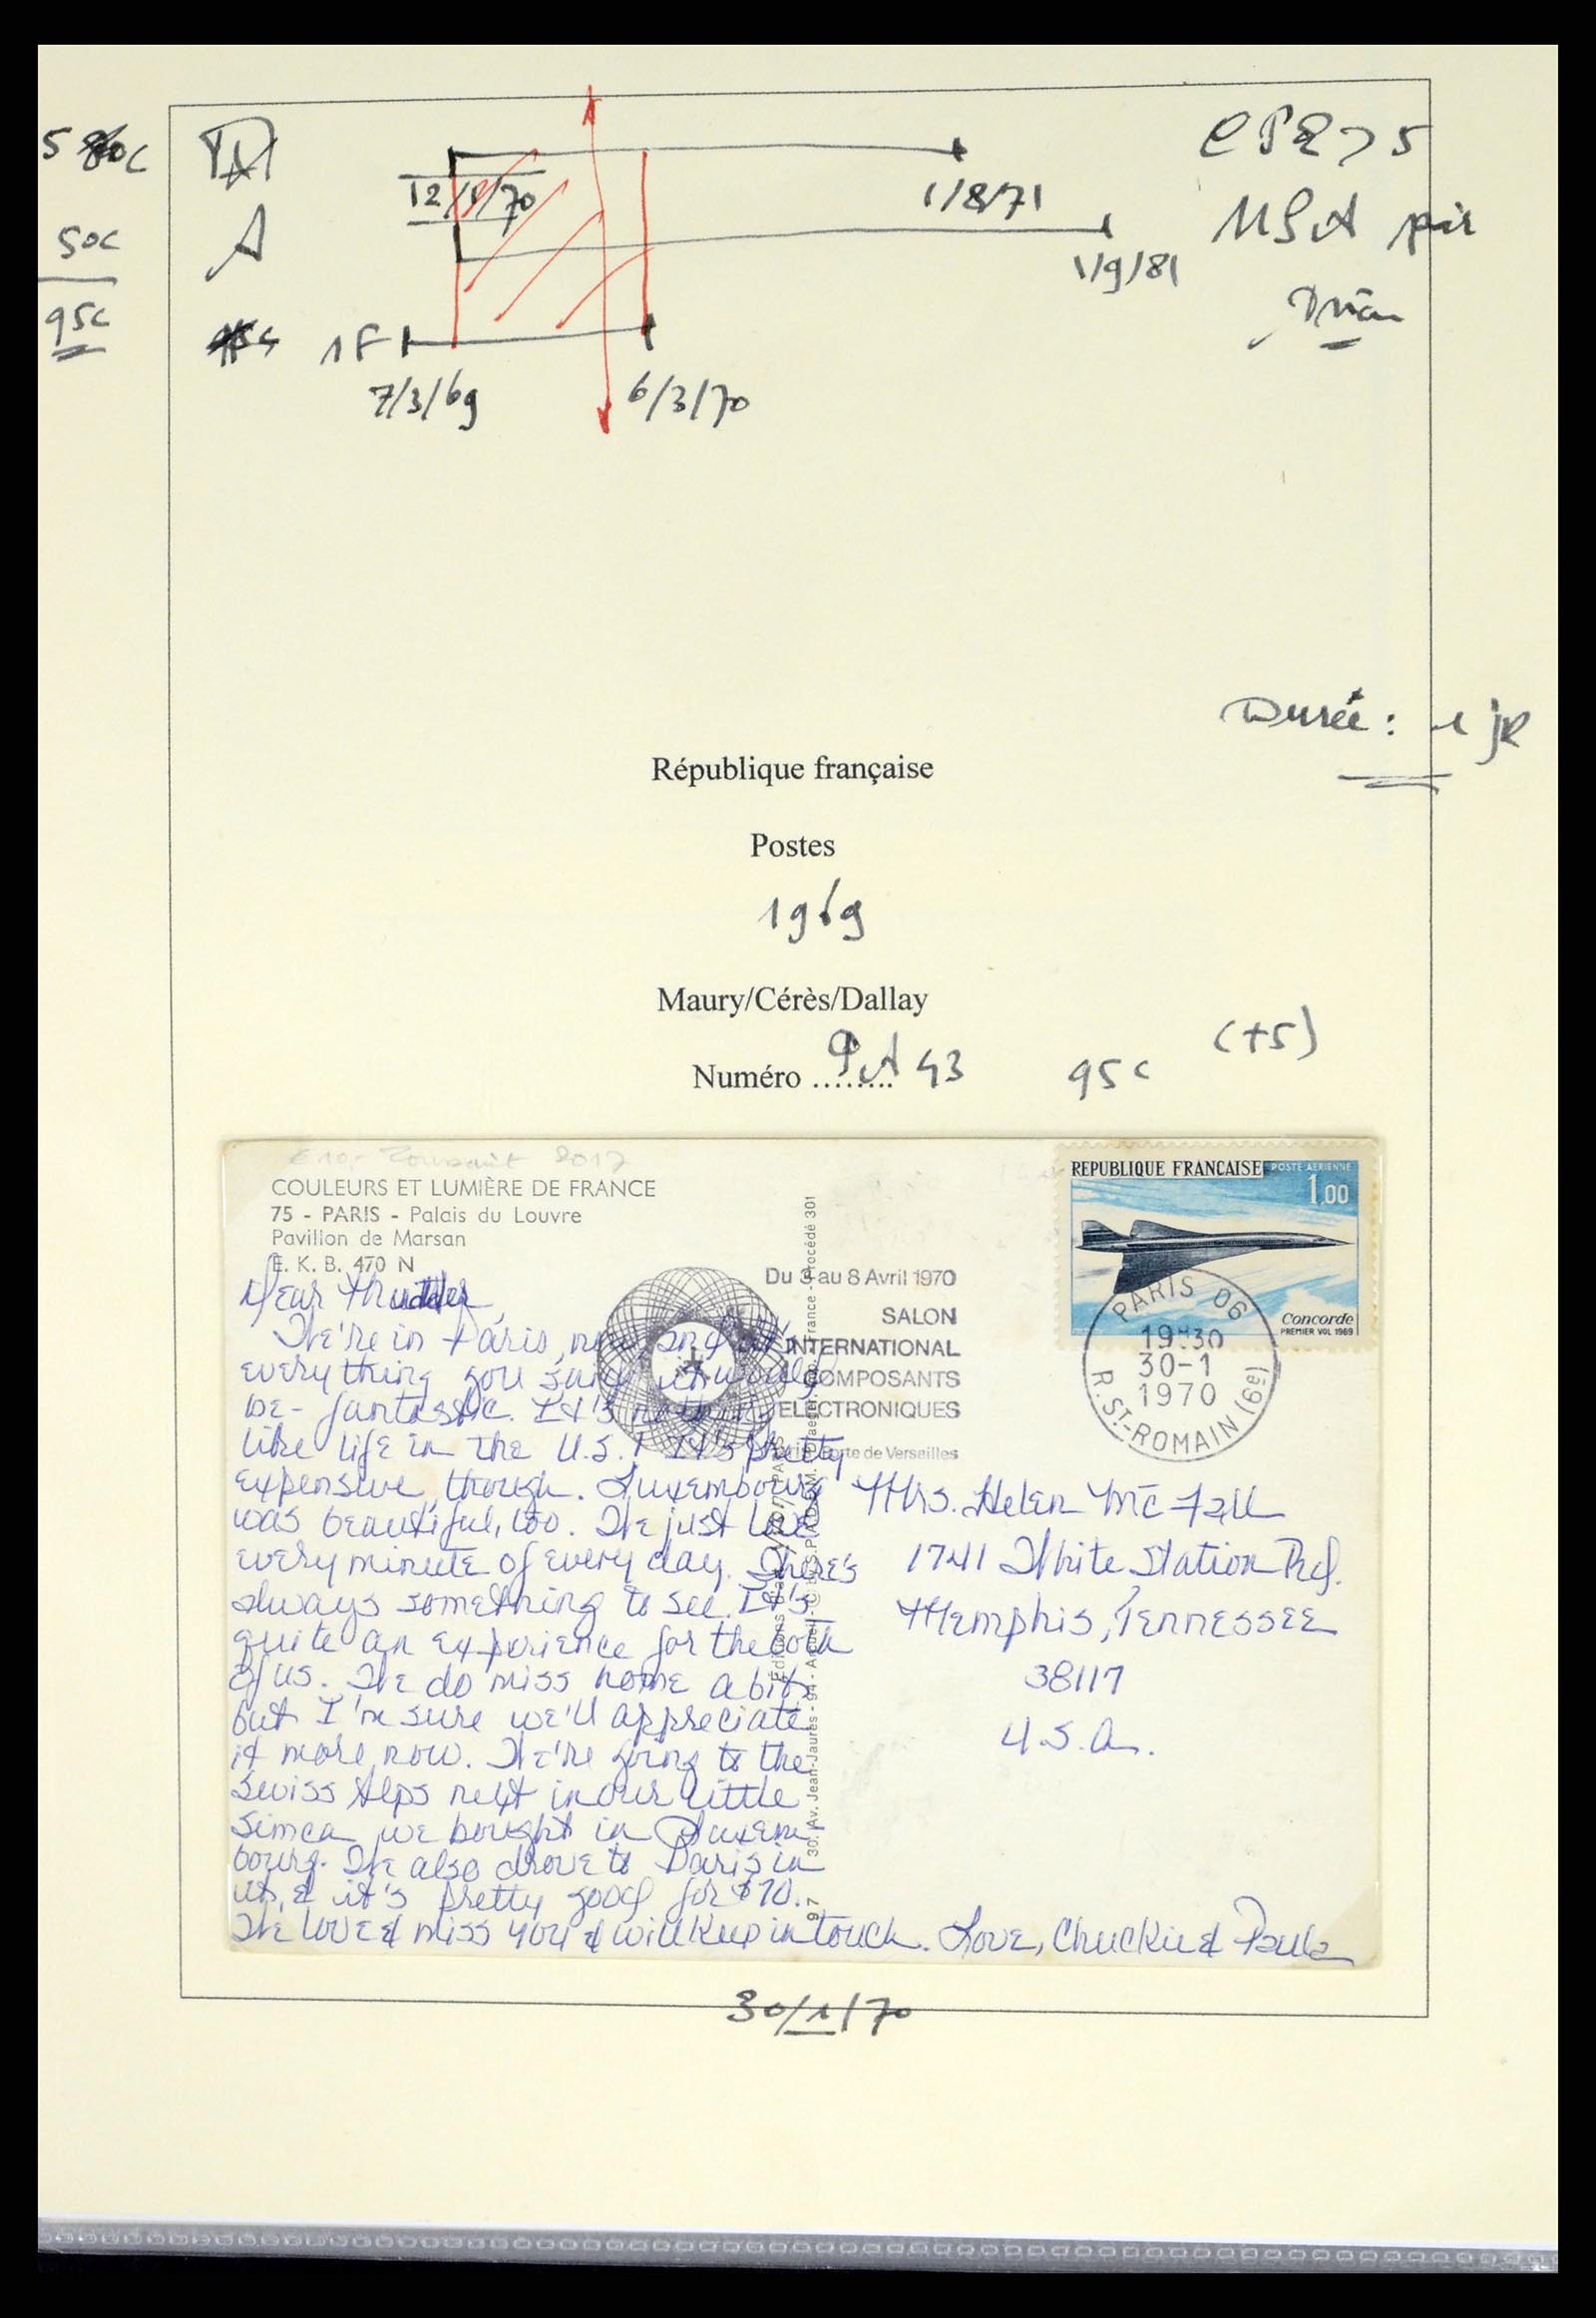 50c
95c
A
12/1/70
1/8/71
1/9/81
1F
7/3/69
6/3/70
USA par
Durée :
République française
Postes
1969
Maury/Cérès/Dallay
Numéro ........ PA 43
95c
(+5)
2017
COULEURS ET LUMIÈRE DE FRANCE
75 - PARIS - Palais du Louvre
Pavillon de Marsan
E. K. B. 470 N
REPUBLIQUE FRANCAISE
POSTE AERIENNE
1,00
Concorde
PREMIER VOL 1969
PARIS 06
19H30
30-1
1970
R. ST-ROMAIN (6e)
Du 3 au 8 Avril 1970
SALON
INTERNATIONAL
COMPOSANTS
ELECTRONIQUES
Porte de Versailles
Dear
We're in Paris, now, and it's
everything you said it would
be - fantastic. It's nothing
like life in the U.S.! It's pretty
expensive, though. Luxembourg
was beautiful, too. We just love
every minute of every day. There's
always something to see. It's
quite an experience for the both
of us. We do miss home a bit,
but I'm sure we'll appreciate
it more now. We're going to the
Swiss Alps next in our little
Simca we bought in Luxem-
bourg. We also drove to Paris in
it, & it's pretty good for $70.
We love & miss you & will keep in touch. Love, Chuckie & Paula
Mrs. Helen McFall
1741 White Station Rd.
Memphis, Tennessee
38117
U.S.A.
30, Av. Jean-Jaurès - 94 - Arcueil
97
30/1/70